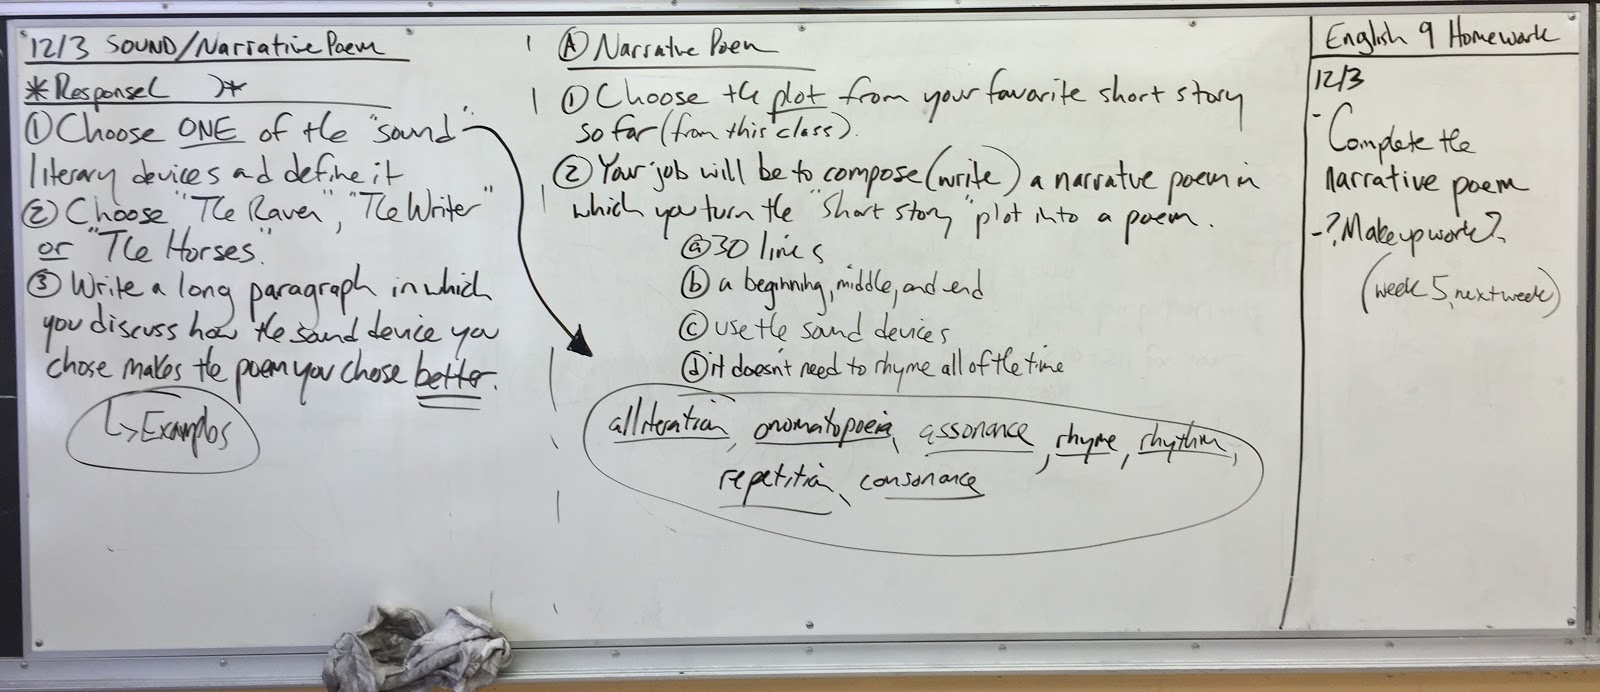 12/3 SOUND/Narrative Poem
*Response( )*
① Choose ONE of the "sound"
literary devices and define it
② Choose "The Raven", "The Writer"
or "The Horses."
③ Write a long paragraph in which
you discuss how the sound device you
chose makes the poem you chose better.
↳ Examples
Ⓐ Narrative Poem
① Choose the plot from your favorite short story
so far (from this class).
② Your job will be to compose (write) a narrative poem in
which you turn the "short story" plot into a poem.
ⓐ 30 lines
ⓑ a beginning, middle, and end
ⓒ use the sound devices
ⓓ it doesn't need to rhyme all of the time
alliteration, onomatopoeia, assonance, rhyme, rhythm,
repetition, consonance
English 9 Homework
12/3
- Complete the
narrative poem
- ? Makeup work?
(week 5, next week)